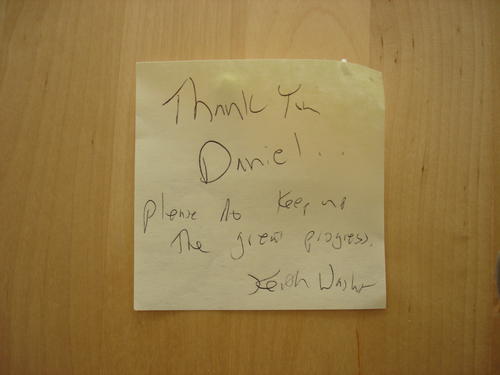 Thank You
Daniel...
Please do keep up
the great progress.
Keith